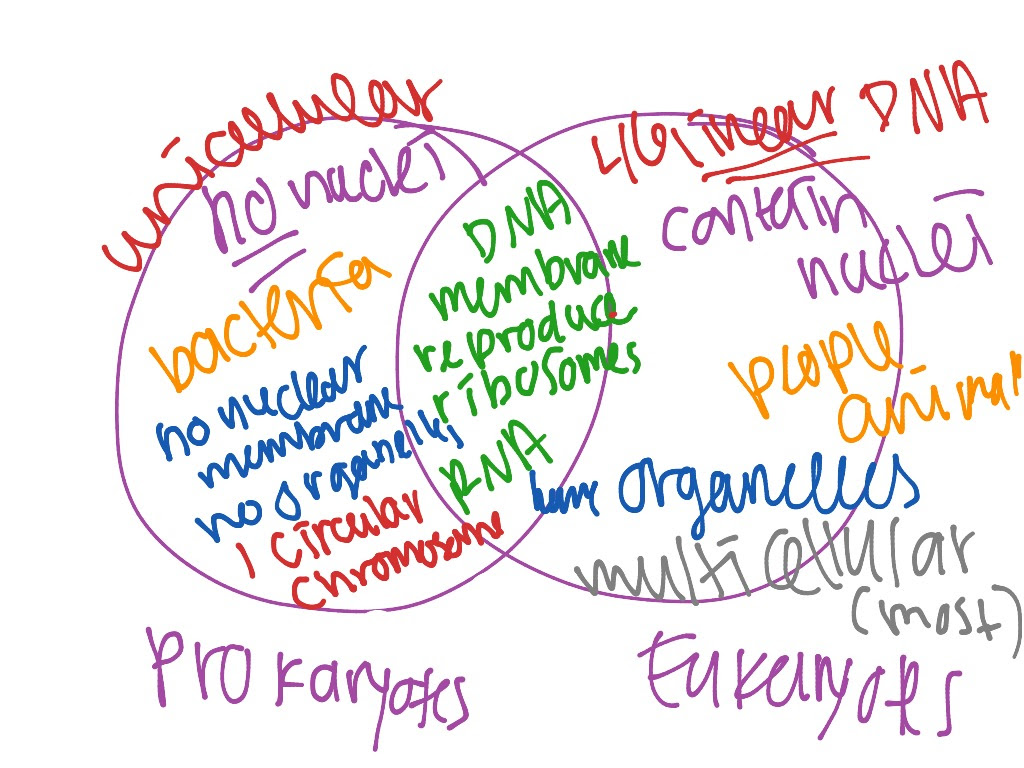 unicellular
no nuclei
bacteria
no nuclear
membrane
no organelles
1 circular
chromosome
DNA
membrane
reproduce
ribosomes
RNA
linear DNA
contain
nuclei
people
animal
have organelles
multicellular
(most)
Prokaryotes
Eukaryotes